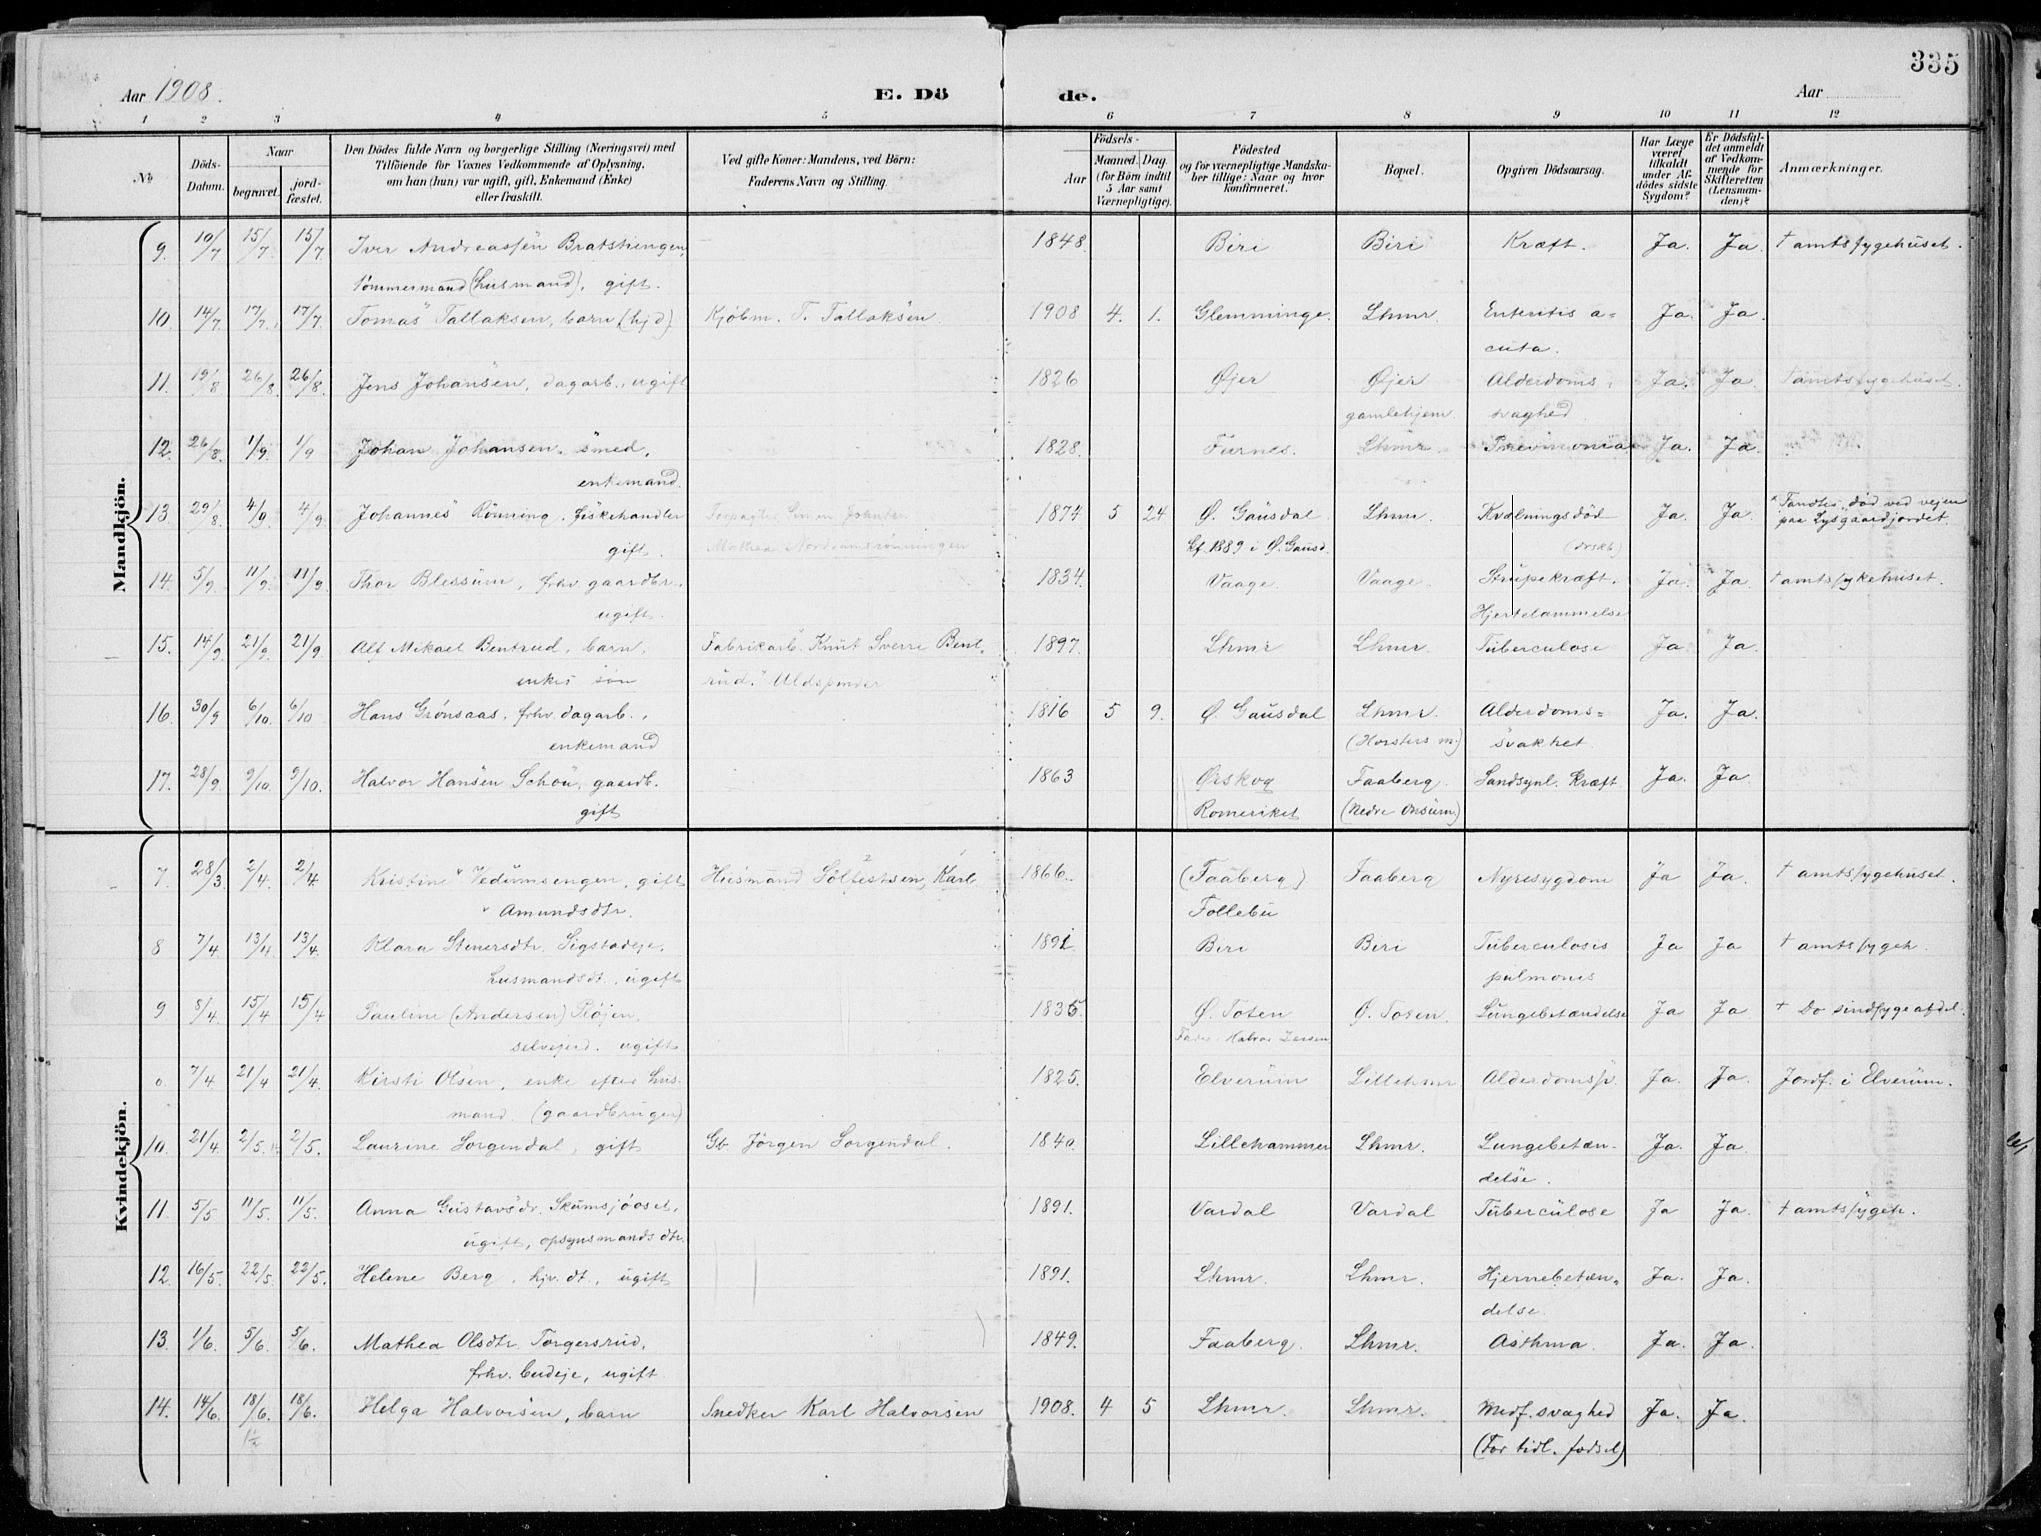 335
Aar 1908.
E. Döde.
Aar
1 2 3 4 5 6 7 8 9 10 11 12
No
Döds-Datum.
Naar begravet. jordfæstet.
Den Dödes fulde Navn og borgerlige Stilling (Næringsvei) med Tilföiende for Voxnes Vedkommende af Oplysning, om han (hun) var ugift, gift, Enkemand (Enke) eller fraskilt.
Ved gifte Koner: Mandens, ved Börn: Faderens Navn og Stilling.
Födsels- Aar Maaned. Dag. (for Börn indtil 5 Aar samt Værnepligtige).
Födested og for værnepligtige Mandskaber tillige: Naar og hvor konfirmeret.
Bopæl.
Opgiven Dödsaarsag.
Har Læge været tilkaldt under Afdödes sidste Sygdom?
Er Dödsfaldet anmeldt af Vedkommende for Skifteretten (Lensmanden)?
Anmærkninger.
Mandkjön.
9. 10/7 15/7 15/7 Iver Andreassen Bratstiengen, 1848. Biri Biri Kræft. Ja. Ja. † amtssygehuset.
Tømmermand (husmand), gift.
10. 14/7 17/7. 17/7. Tomas Tallaksen, barn (hjd) Kjöbm. T. Tallaksen 1908 4. 1. Glemminge. Lhmr. Enteritis a=
cuta. Ja. Ja.
11. 19/8 26/8. 26/8. Jens Johansen, dagarb., ugift 1826 Øjer Øjer Alderdoms- Ja. Ja. † amtssygehuset.
gamlehjem. svaghed
12. 26/8. 1/9. 1/9 Johan Johansen, smed, 1828. Furnes. Lhmr. Pneumonia Ja. Ja.
enkemand.
13. 29/8. 4/9 4/9 Johannes Rönning, fiskehandler 1874 5 24 Ø. Gausdal Lhmr. Kvælningsdöd Ja. Ja. Fandtes död ved vejen
gift. Mathea Nordrumsrønningen kf. 1889 i Ø. Gausd. paa Lysgaardjordet.
14. 5/9. 11/9. 11/9 Thor Blessum, frhv. gaardbr., 1834. Vaage. Vaage. Strupekræft. Ja. Ja. † amtssykehuset.
ugift. Hjertelammelse
15. 14/9 21/9. 21/9. Alf Mikael Bentrud, barn, Fabrikarb. Knut Sverre Bent- 1897. Lhmr Lhmr. Tuberculose Ja Ja.
enkes sön rud. Uldspinder
16. 30/9 6/10. 6/10 Hans Grönsaas, frhv. dagarb., 1816 5 9. Ø. Gausdal Lhmr. Alderdoms= Ja. Ja.
enkemand (Horsters m.) svakhet
17. 28/9. 9/10. 9/10. Halvor Hansen Schou, gaardb. 1863 Ørskog Faaberg Sandsynl. Kræft Ja. Ja.
gift Romeriket (Nedre Onsum)
Kvindekjön.
7. 28/3. 2/4. 2/4. Kristine Vedumsengen, gift Husmand Karl 1866. (Faaberg) Faaberg Nyresygdom Ja Ja. † amtssygehuset.
Amundsdtr. Follebu
8 7/4. 13/4 13/4. Klara Stenersdtr. Sigstadeje, 1891. Biri Biri Tuberculosis Ja Ja † amtssygeh.
husmandsdt., ugift pulmones
9 8/4. 15/4 15/4 Pauline (Andersen) Plöjen, 1835 Ø. Toten Ø. Toten. Lungebetændelse Ja Ja † Do sindssygeafdel.
selvejerd. ugift
o. 7/4 21/4 21/4. Kirsti Olsen, enke efter hus- 1825. Elverum Lillehmr Alderdomssv. Ja. Ja. Jordf. i Elverum.
mand (gaardbruger)
10. 21/4. 2/5. 2/5. Laurine Sorgendal, gift Gb. Jörgen Sorgendal. 1840. Lillehammer Lhmr. Lungebetæn- Ja. Ja.
delse.
11. 5/5 11/5. 11/5. Anna Gustavsdr. Skumsjöoset, 1891. Vardal Vardal Tuberculose Ja Ja. † amtssygeh.
ugift, opsynsmands dtr.
12. 16/5. 22/5. 22/5. Helene Berg, hjv. dt., ugift 1891. Lhmr. Lhmr. Hjernebetæn= Ja. Ja.
delse.
13. 1/6. 5/6. 5/6. Mathea Olsdtr. Torgersrud, 1849. Faaberg. Lhmr. Asthma. Ja. Ja.
frhv. budeje, ugift.
14. 14/6. 18/6. 18/6. Helga Halvorsen, barn Snedker Karl Halvorsen 1908. 4 5 Lhmr. Lhmr. Medf. svaghed Ja. Ja.
(For tidl. fødsel)